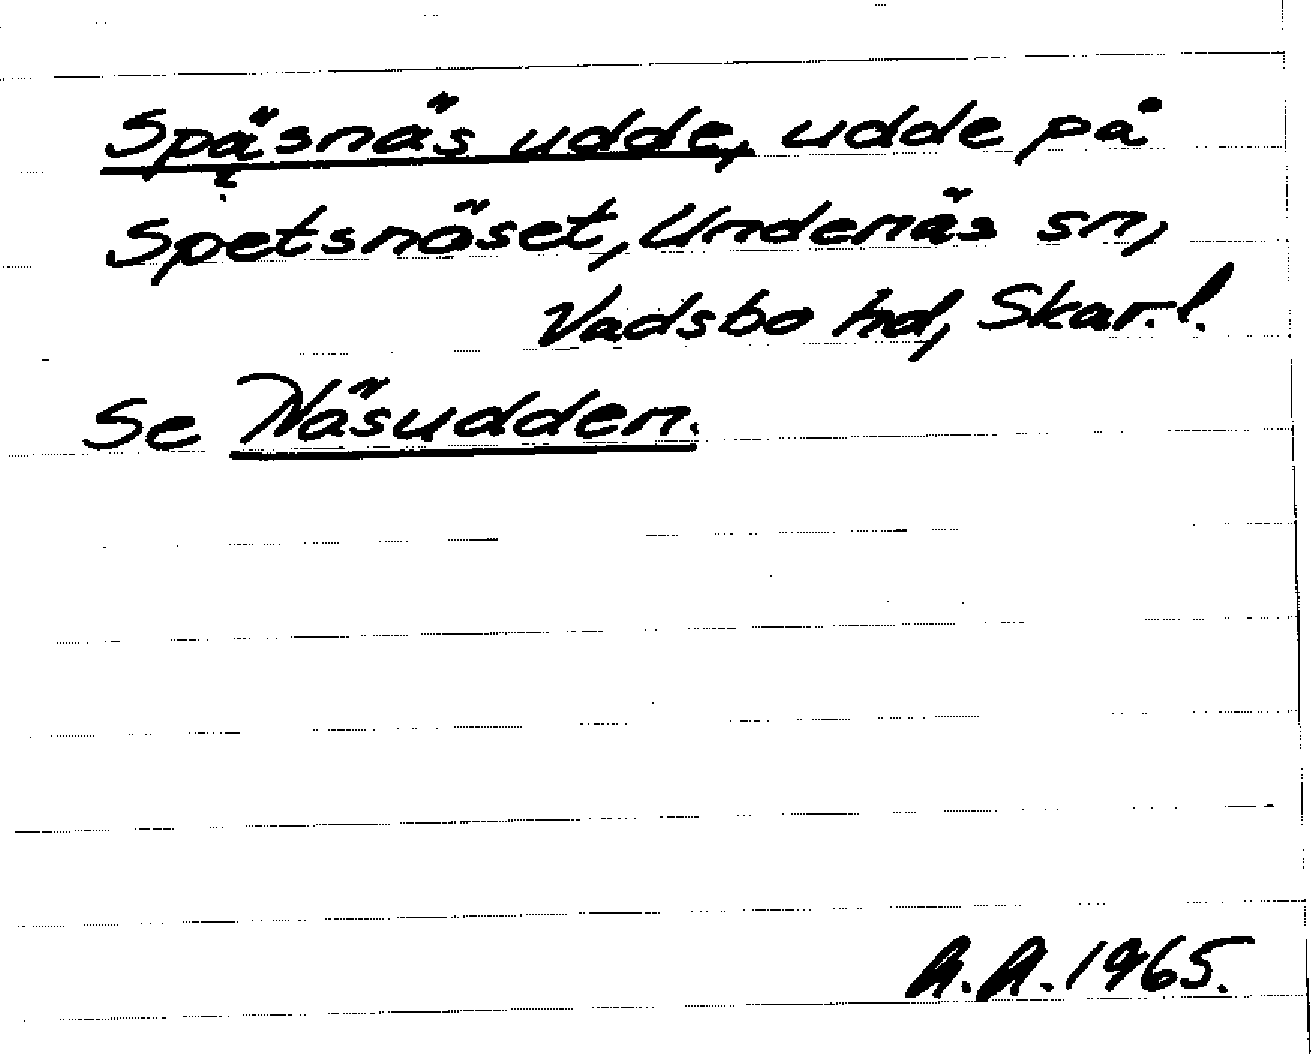 Späsnäs udde, udde på
Spetsnäset, Undenäs sn,
Vadsbo hd, Skar. l.
Se Näsudden.
A.A. 1965.